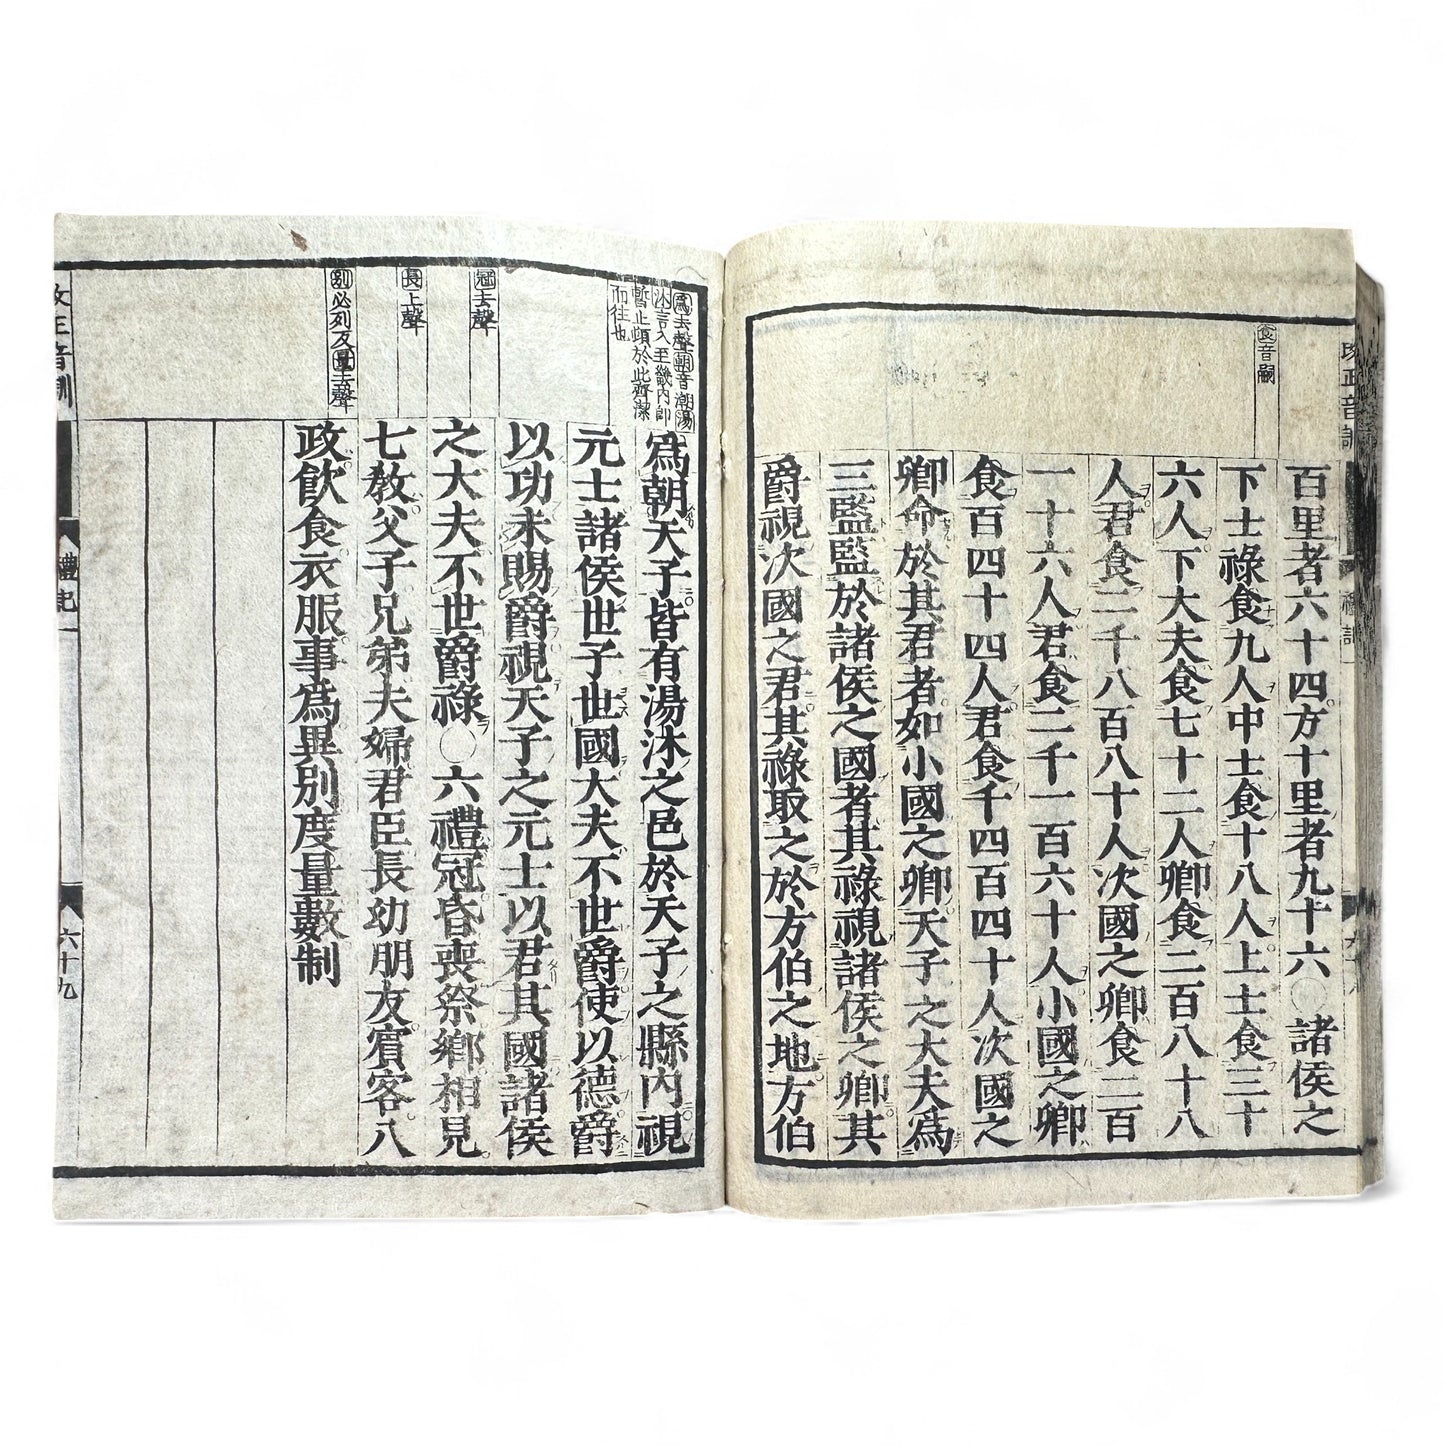 食音嗣
百里者六十四方十里者九十六○諸侯之
下士祿食九人中士食十八人上士食三十
六人下大夫食七十二人卿食二百八十八
人君食二千八百八十人次國之卿食二百
一十六人君食二千一百六十人小國之卿
食百四十四人君食千四百四十人次國之
卿命於其君者如小國之卿天子之大夫爲
三監監於諸侯之國者其祿視諸侯之卿其
爵視次國之君其祿取之於方伯之地方伯
爲去聲朝音潮湯
沐言入至畿内即
暫止頓於此齊潔
而往也
冠去聲
長上聲
別必列反量去聲
爲朝天子皆有湯沐之邑於天子之縣内視
元士諸侯世子世國大夫不世爵使以德爵
以功未賜爵視天子之元士以君其國諸侯
之大夫不世爵祿○六禮冠昏喪祭鄉相見
七敎父子兄弟夫婦君臣長幼朋友賓客八
政飲食衣服事爲異別度量數制
改正音訓
禮記一
六十九